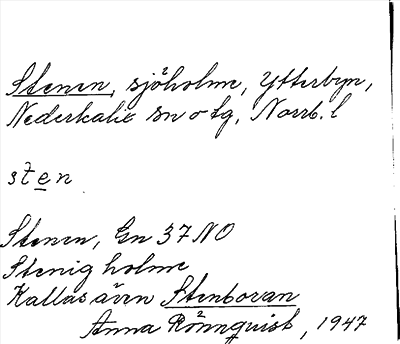 Stenen, sjöholme, Ytterbyn,
Nederkalix sn o tg, Norrb. l
sten
Stenen, Gn 37 NO
Stenig holme
Kallas även Stenboran
Anna Rönnquist, 1947